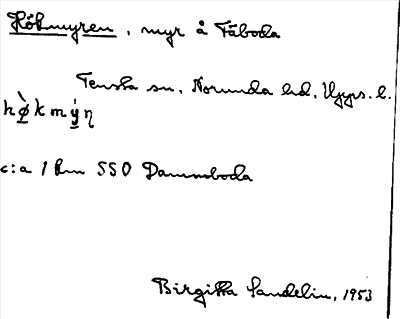 Hökmyren, myr å Fäboda
Tensta sn, Norunda hd, Upps. l.
hø̀kmýŋ
c:a 1 km SSO Dammboda
Birgitta Sandelin, 1953